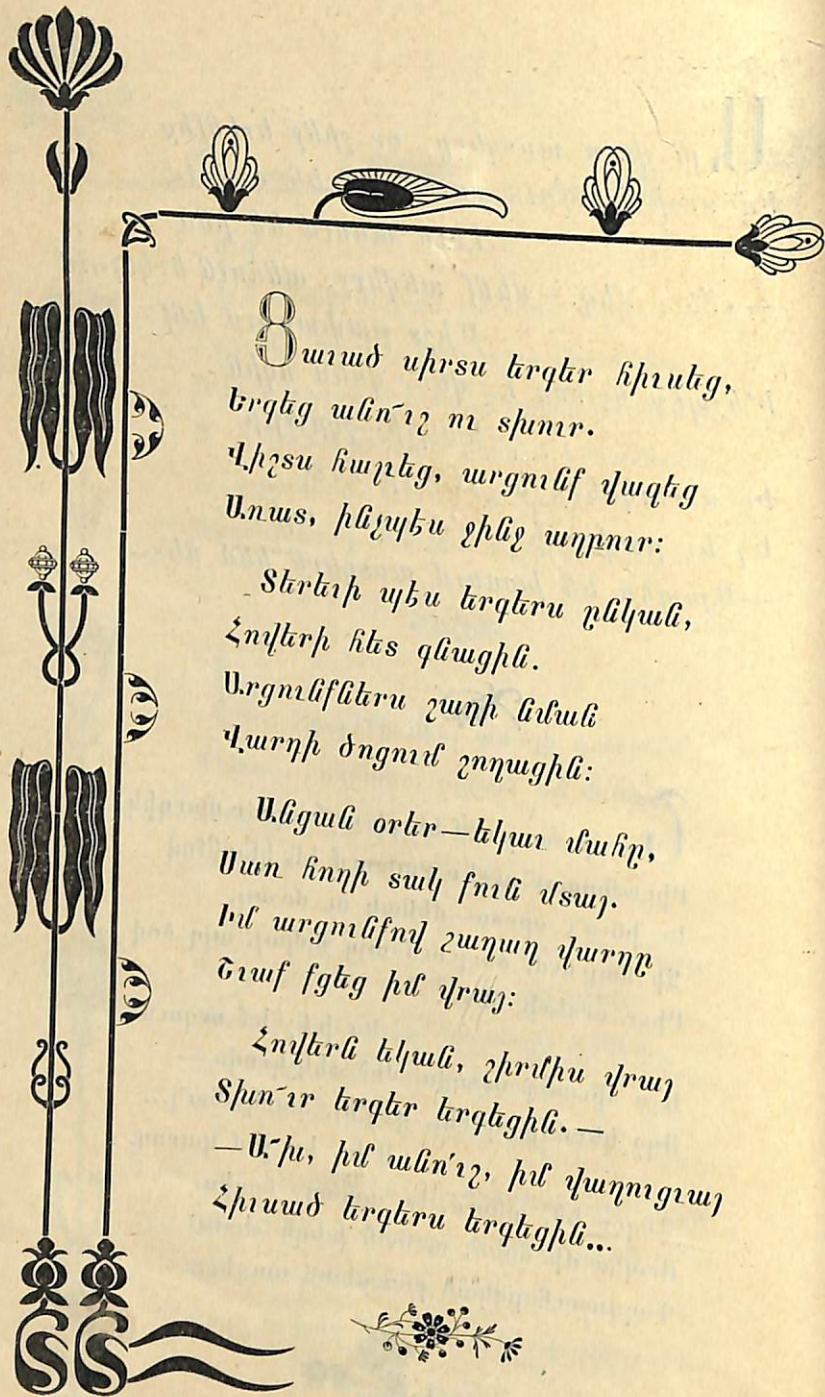 Ցաւած սիրտս երգեր հիւսեց,
Երգեց անո՜ւշ ու տխուր.
Վիշտս հալեց, արցունք վազեց
Առատ, ինչպէս ջինջ աղբուր։
Տերեւի պէս երգերս ընկան,
Հովերի հետ գնացին.
Արցունքներս շաղի նման
Վարդի ծոցում շողացին։
Անցան օրեր—եկաւ մահը,
Սառ հողի տակ քուն մտայ.
Իմ արցունքով շաղաղ վարդը
Շւաք քցեց իմ վրայ։
Հովերն եկան, շիրմիս վրայ
Տխո՜ւր երգեր երգեցին.—
—Ա՜խ, իմ անո՛ւշ, իմ վաղուցւայ
Հիւսած երգերս երգեցին...